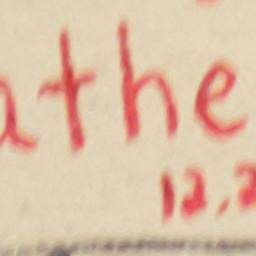 athe
12.2